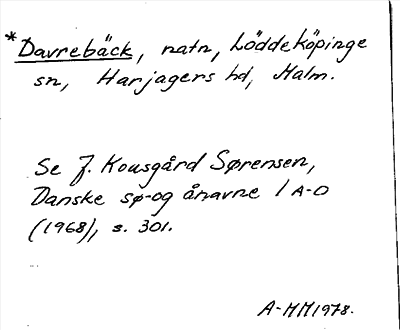 *Davrebäck, natn, Löddeköpinge
sn, Harjagers hd, Malm.
Se J. Kousgård Sørensen,
Danske sø- og ånavne 1 A-O
(1968), s. 301.
A-MM1978.